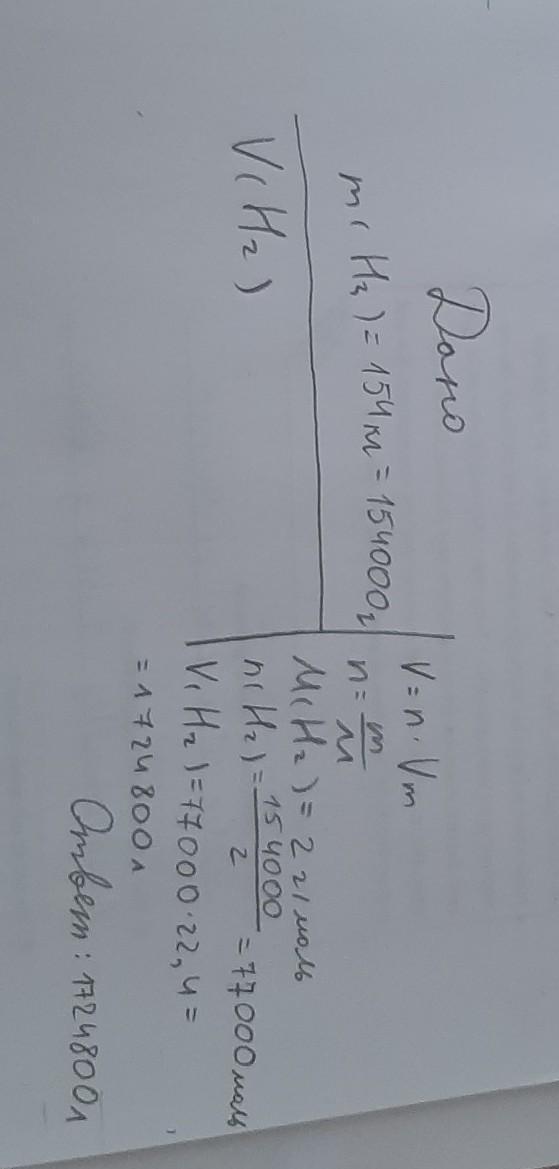 Дано
m(H₂) = 154 кг = 154000 г
V(H₂)
V = n · Vm
n = m/M
M(H₂) = 2 г/моль
n(H₂) = 154000/2 = 77000 моль
V(H₂) = 77000 · 22,4 =
= 1724800 л
Ответ: 1724800 л